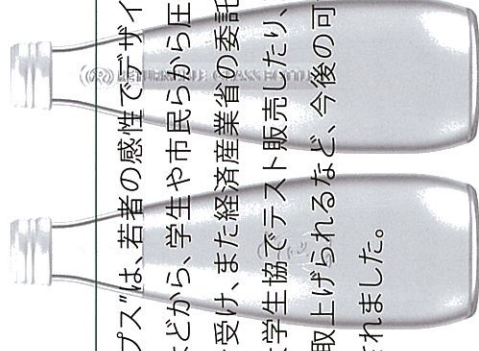 プス”は、若者の感性でデザイ
などから、学生や市民らから圧
受け、また経済産業省の委託
学生協でテスト販売したり、
取上げられるなど、今後の可
されました。